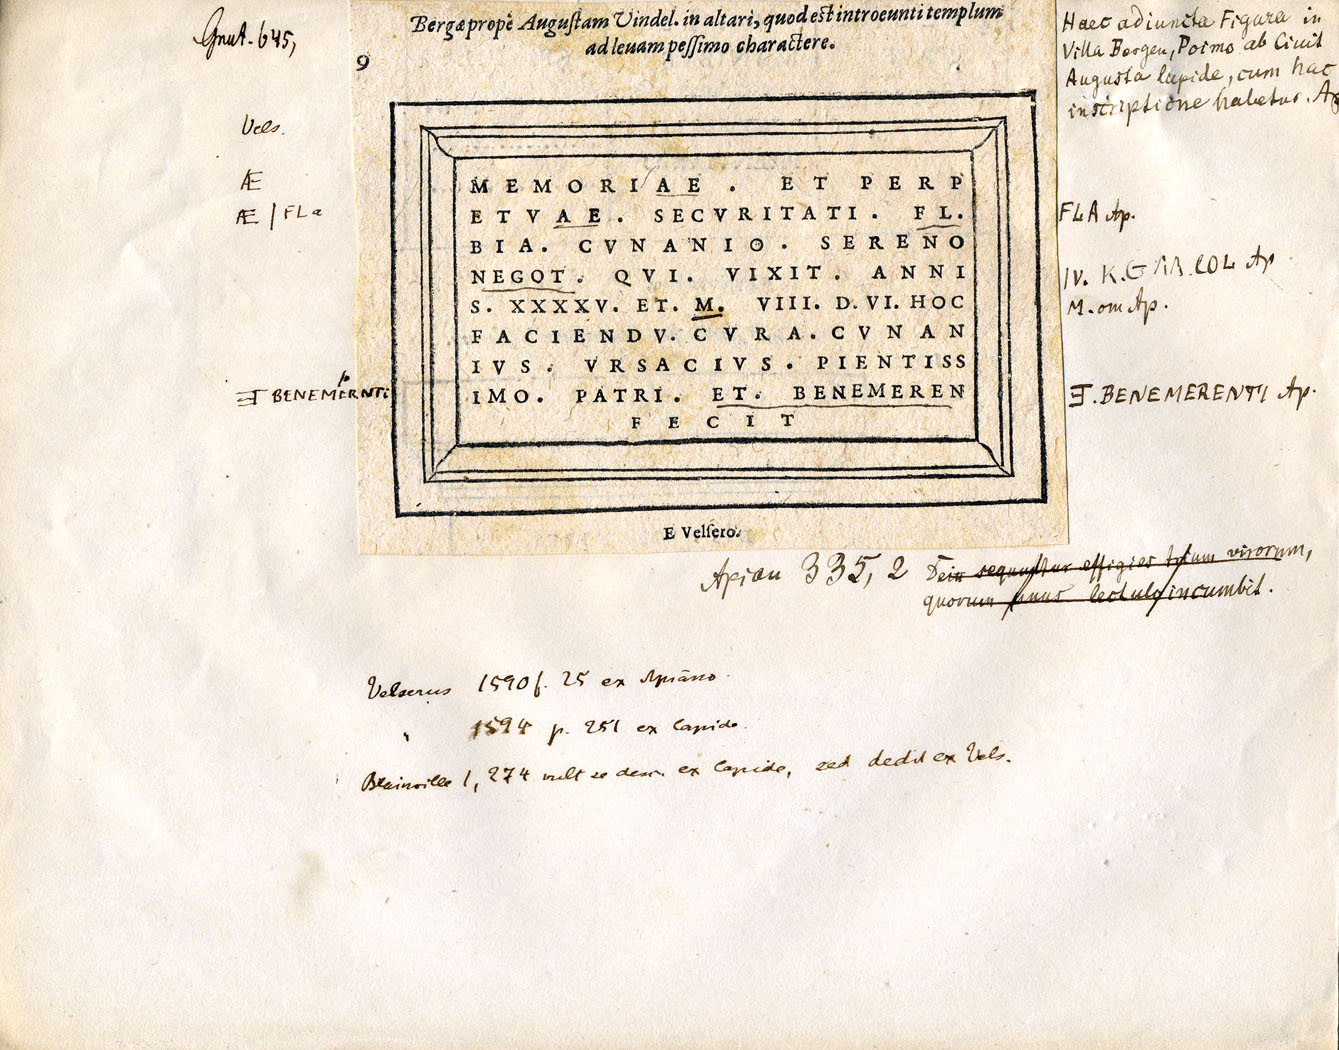 Grut. 645,
9
Bergæ propè Augustam Vindel. in altari, quod est introeunti templum
ad leuam pessimo charactere.
Haec adiuncta Figura in
Villa Bergen, Primo ab Ciuit
Augusta lapide, cum hac
inscriptione habetur. Ap
Vels.
Æ
Æ | FLa
MEMORIAE . ET PERP
ETVAE . SECVRITATI . FL.
BIA. CVNANIO . SERENO
NEGOT . QVI . VIXIT . ANNI
S. XXXXV. ET. M. VIII. D. VI. HOC
FACIENDV. CVRA. CVNAN
IVS . VRSACIVS . PIENTISS
IMO. PATRI. ET. BENEMEREN
FECIT
FLA Ap.
IV. K.
Ap
M. om Ap.
BENEMERNTI
BENEMERENTI Ap.
E Velsero.
Apian 335, 2 Dein sequuntur effigies trium virorum,
quorum unus lectulo incumbit.
Velserus 1590 f. 25 ex Apiano.
" 1594 p. 251 ex lapide.
Blainville 1, 274 vult se descr. ex lapide, sed dedit ex Vels.